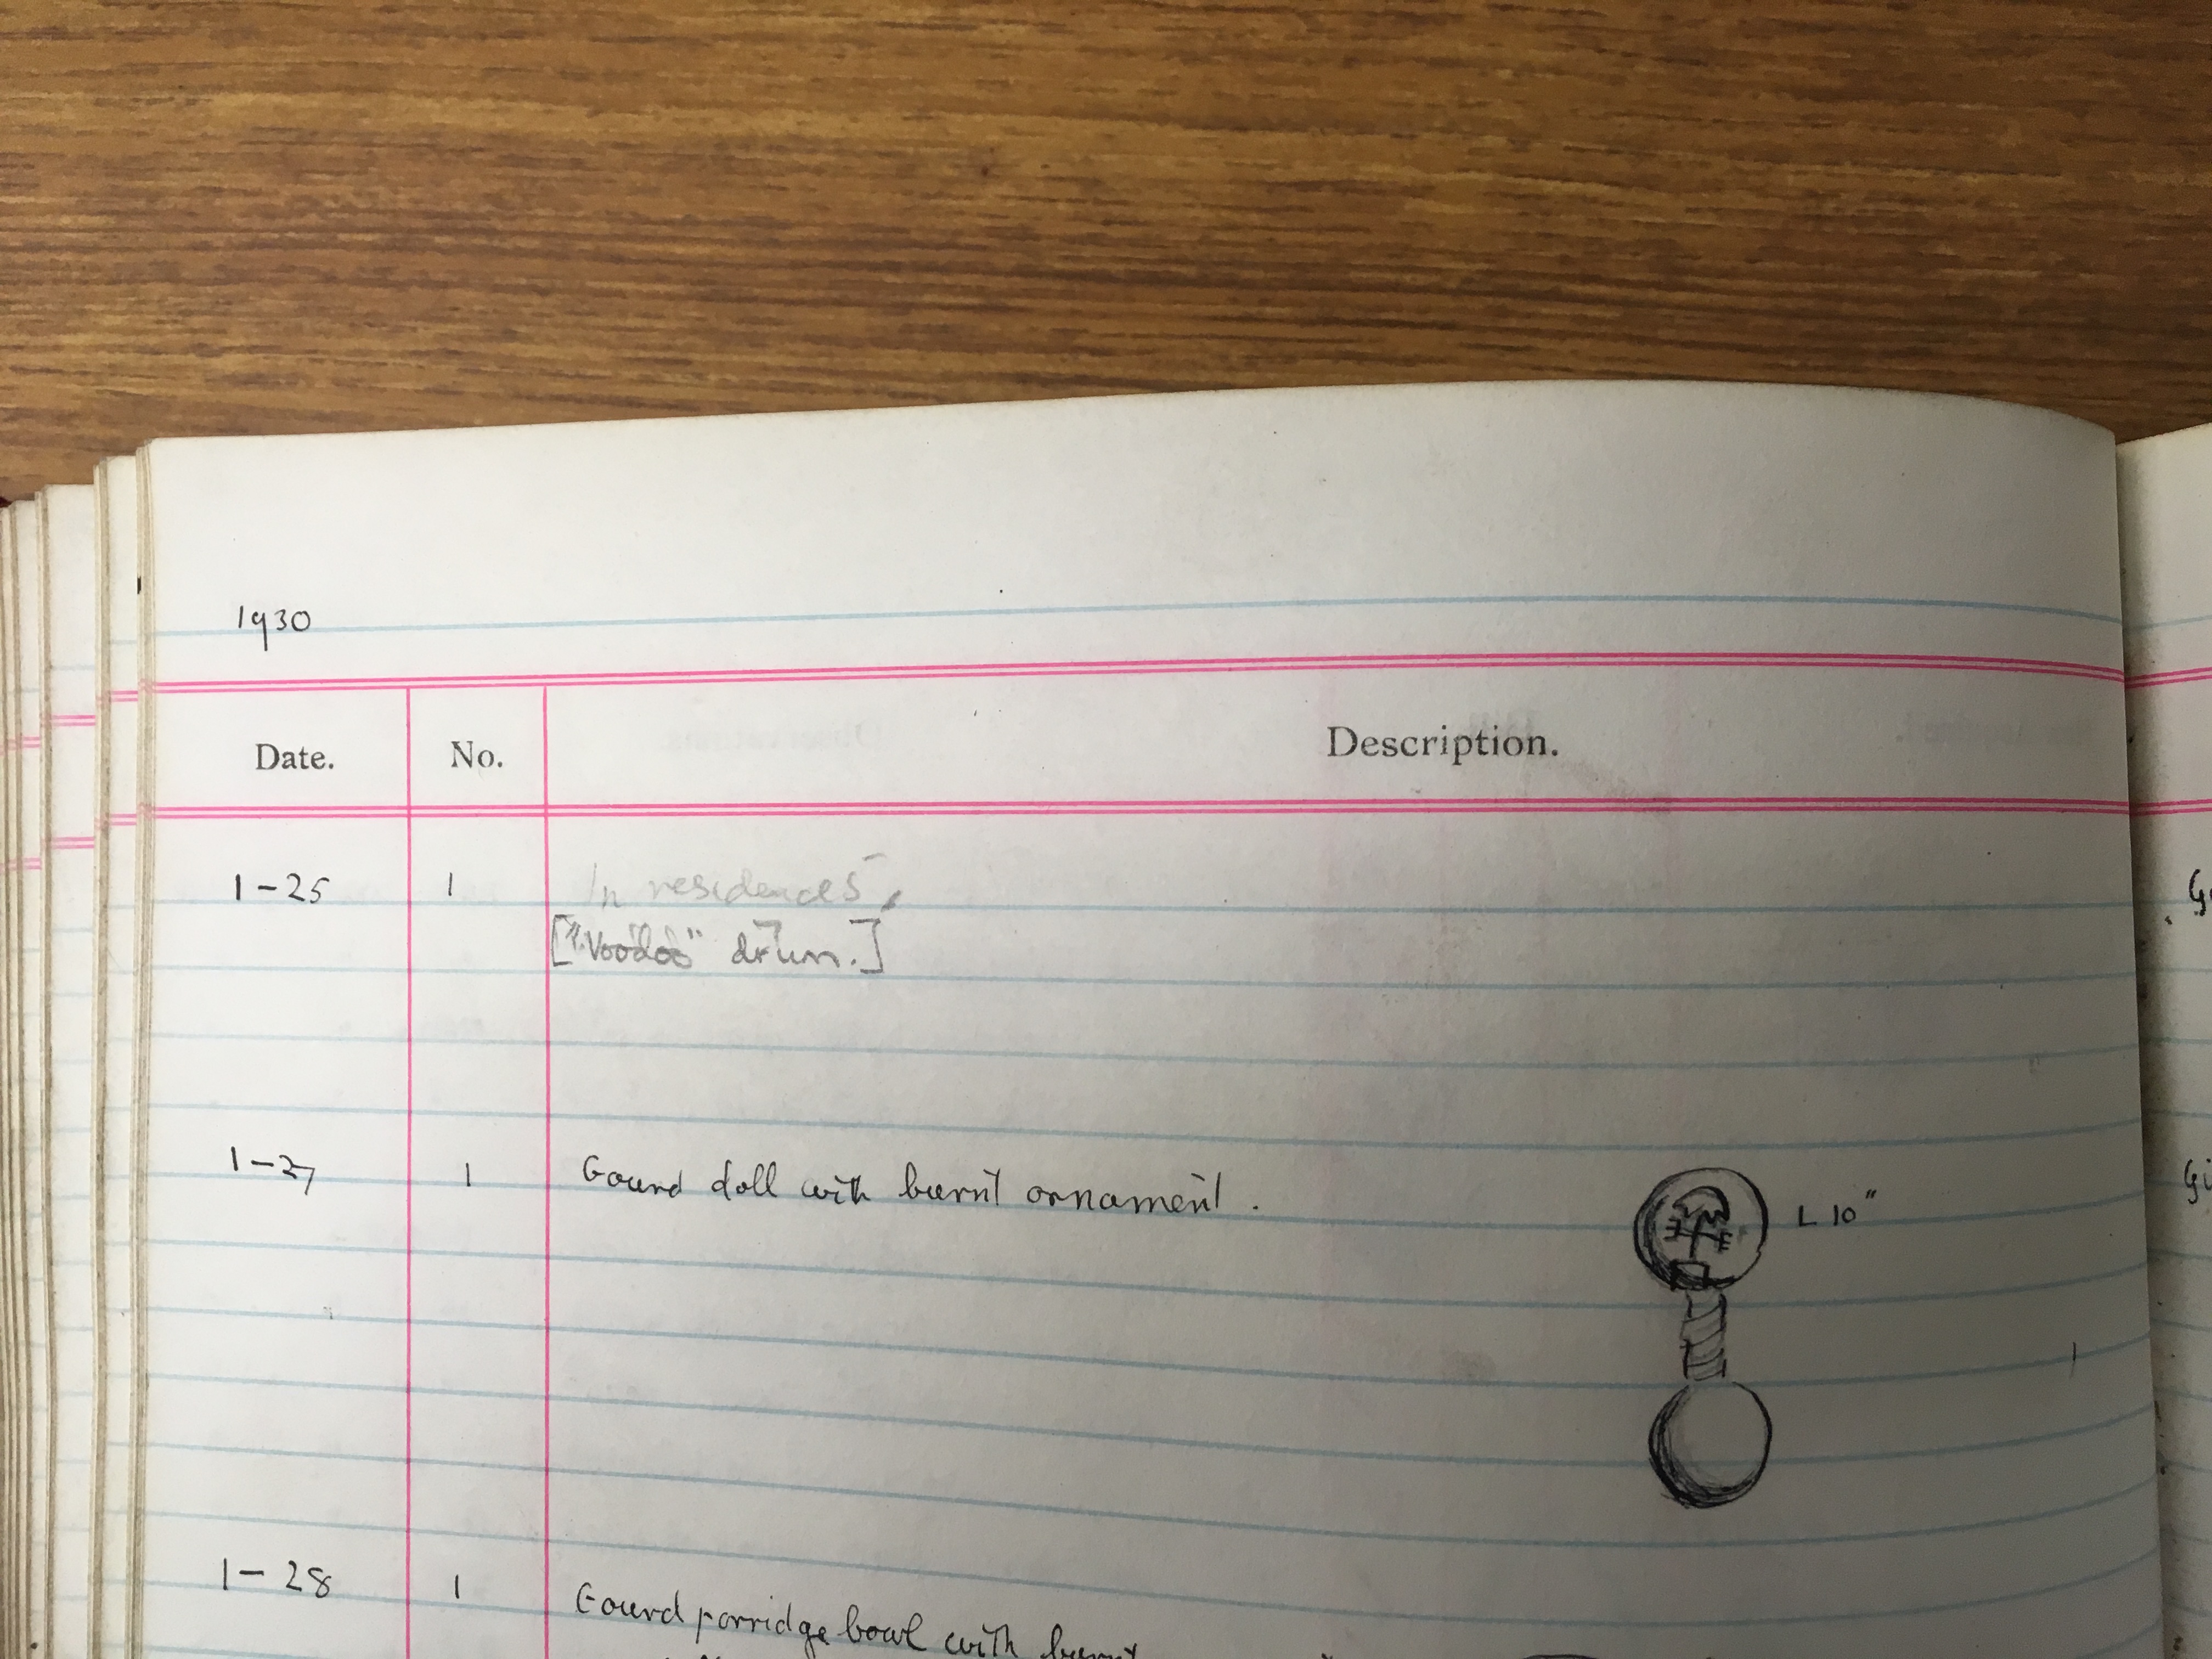 1930
Date. No. Description.
1-25 1 In residences,
["Voodoo" drum.]
1-27 1 Gourd doll with burnt ornament. L 10"
1-28 1 Gourd porridge bowl with burnt